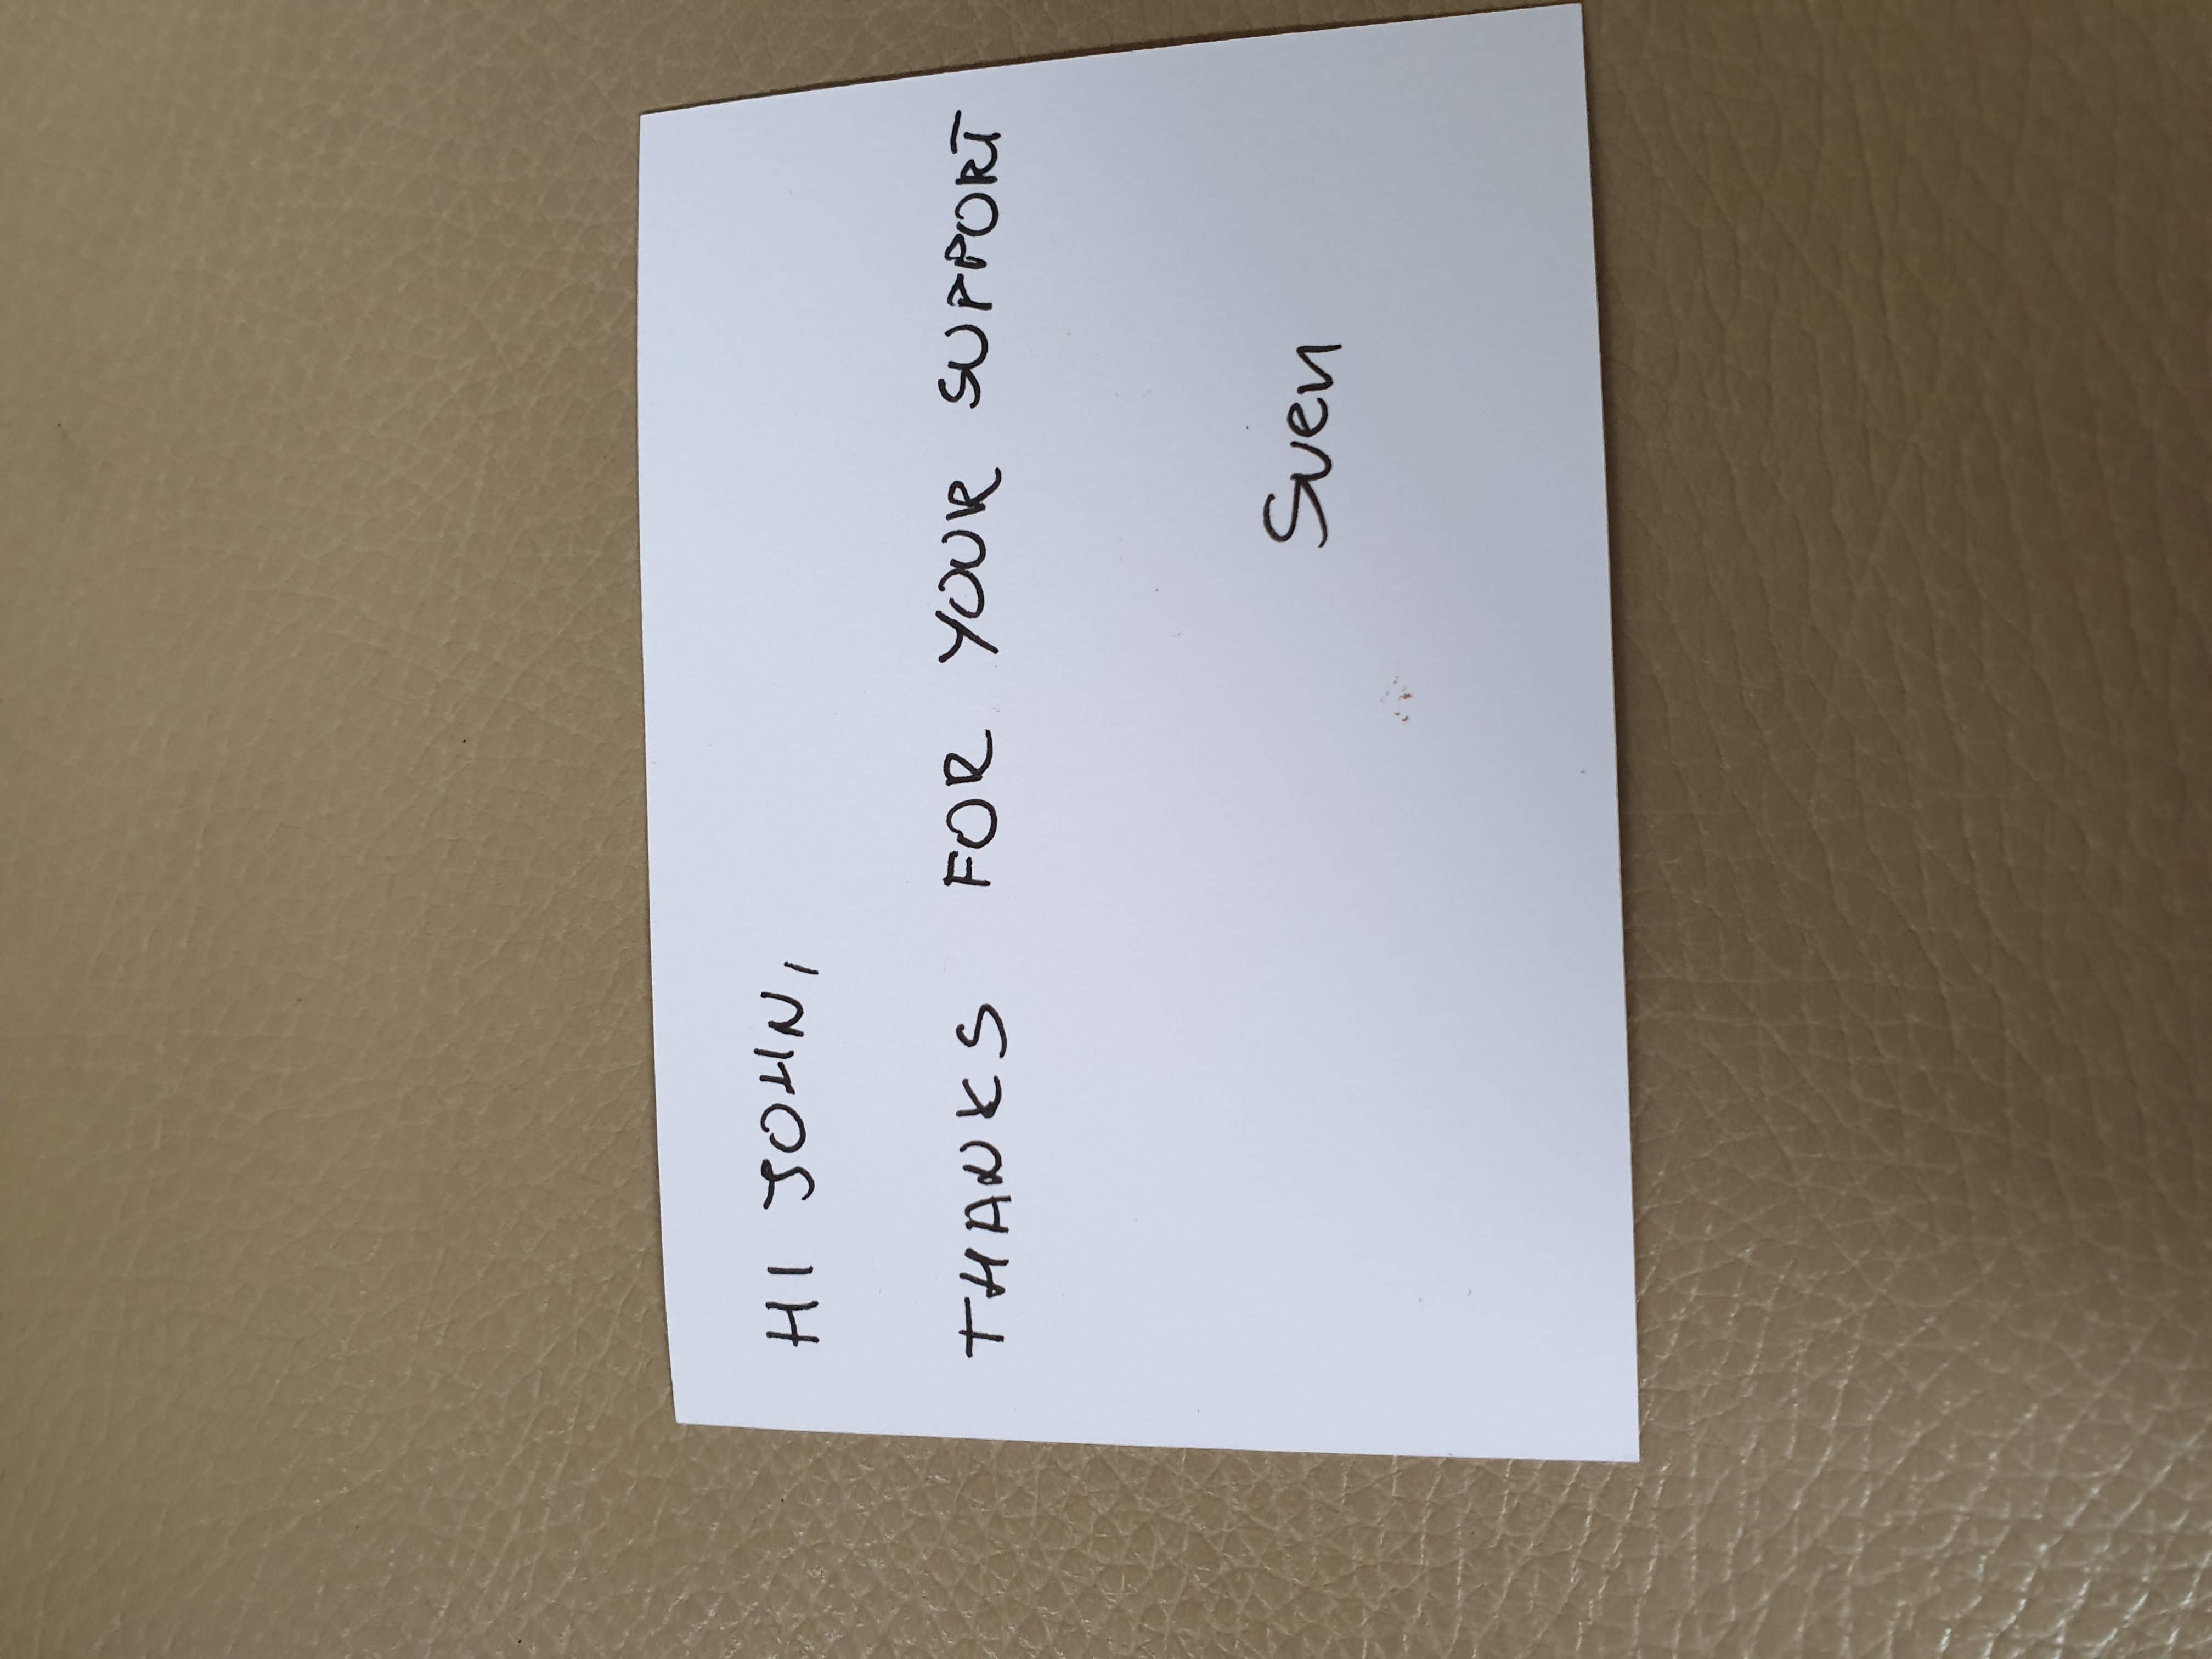 HI JOHN,
THANKS FOR YOUR SUPPORT
Sven